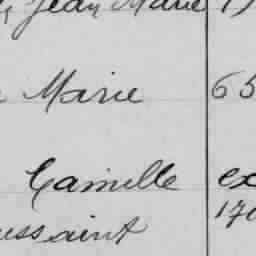 Jean Marie
Marie 65
Camille ex
ussaint 170